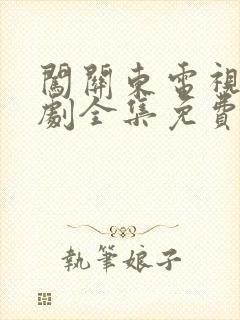 闖關東電視
劇全集免費
執筆娘子